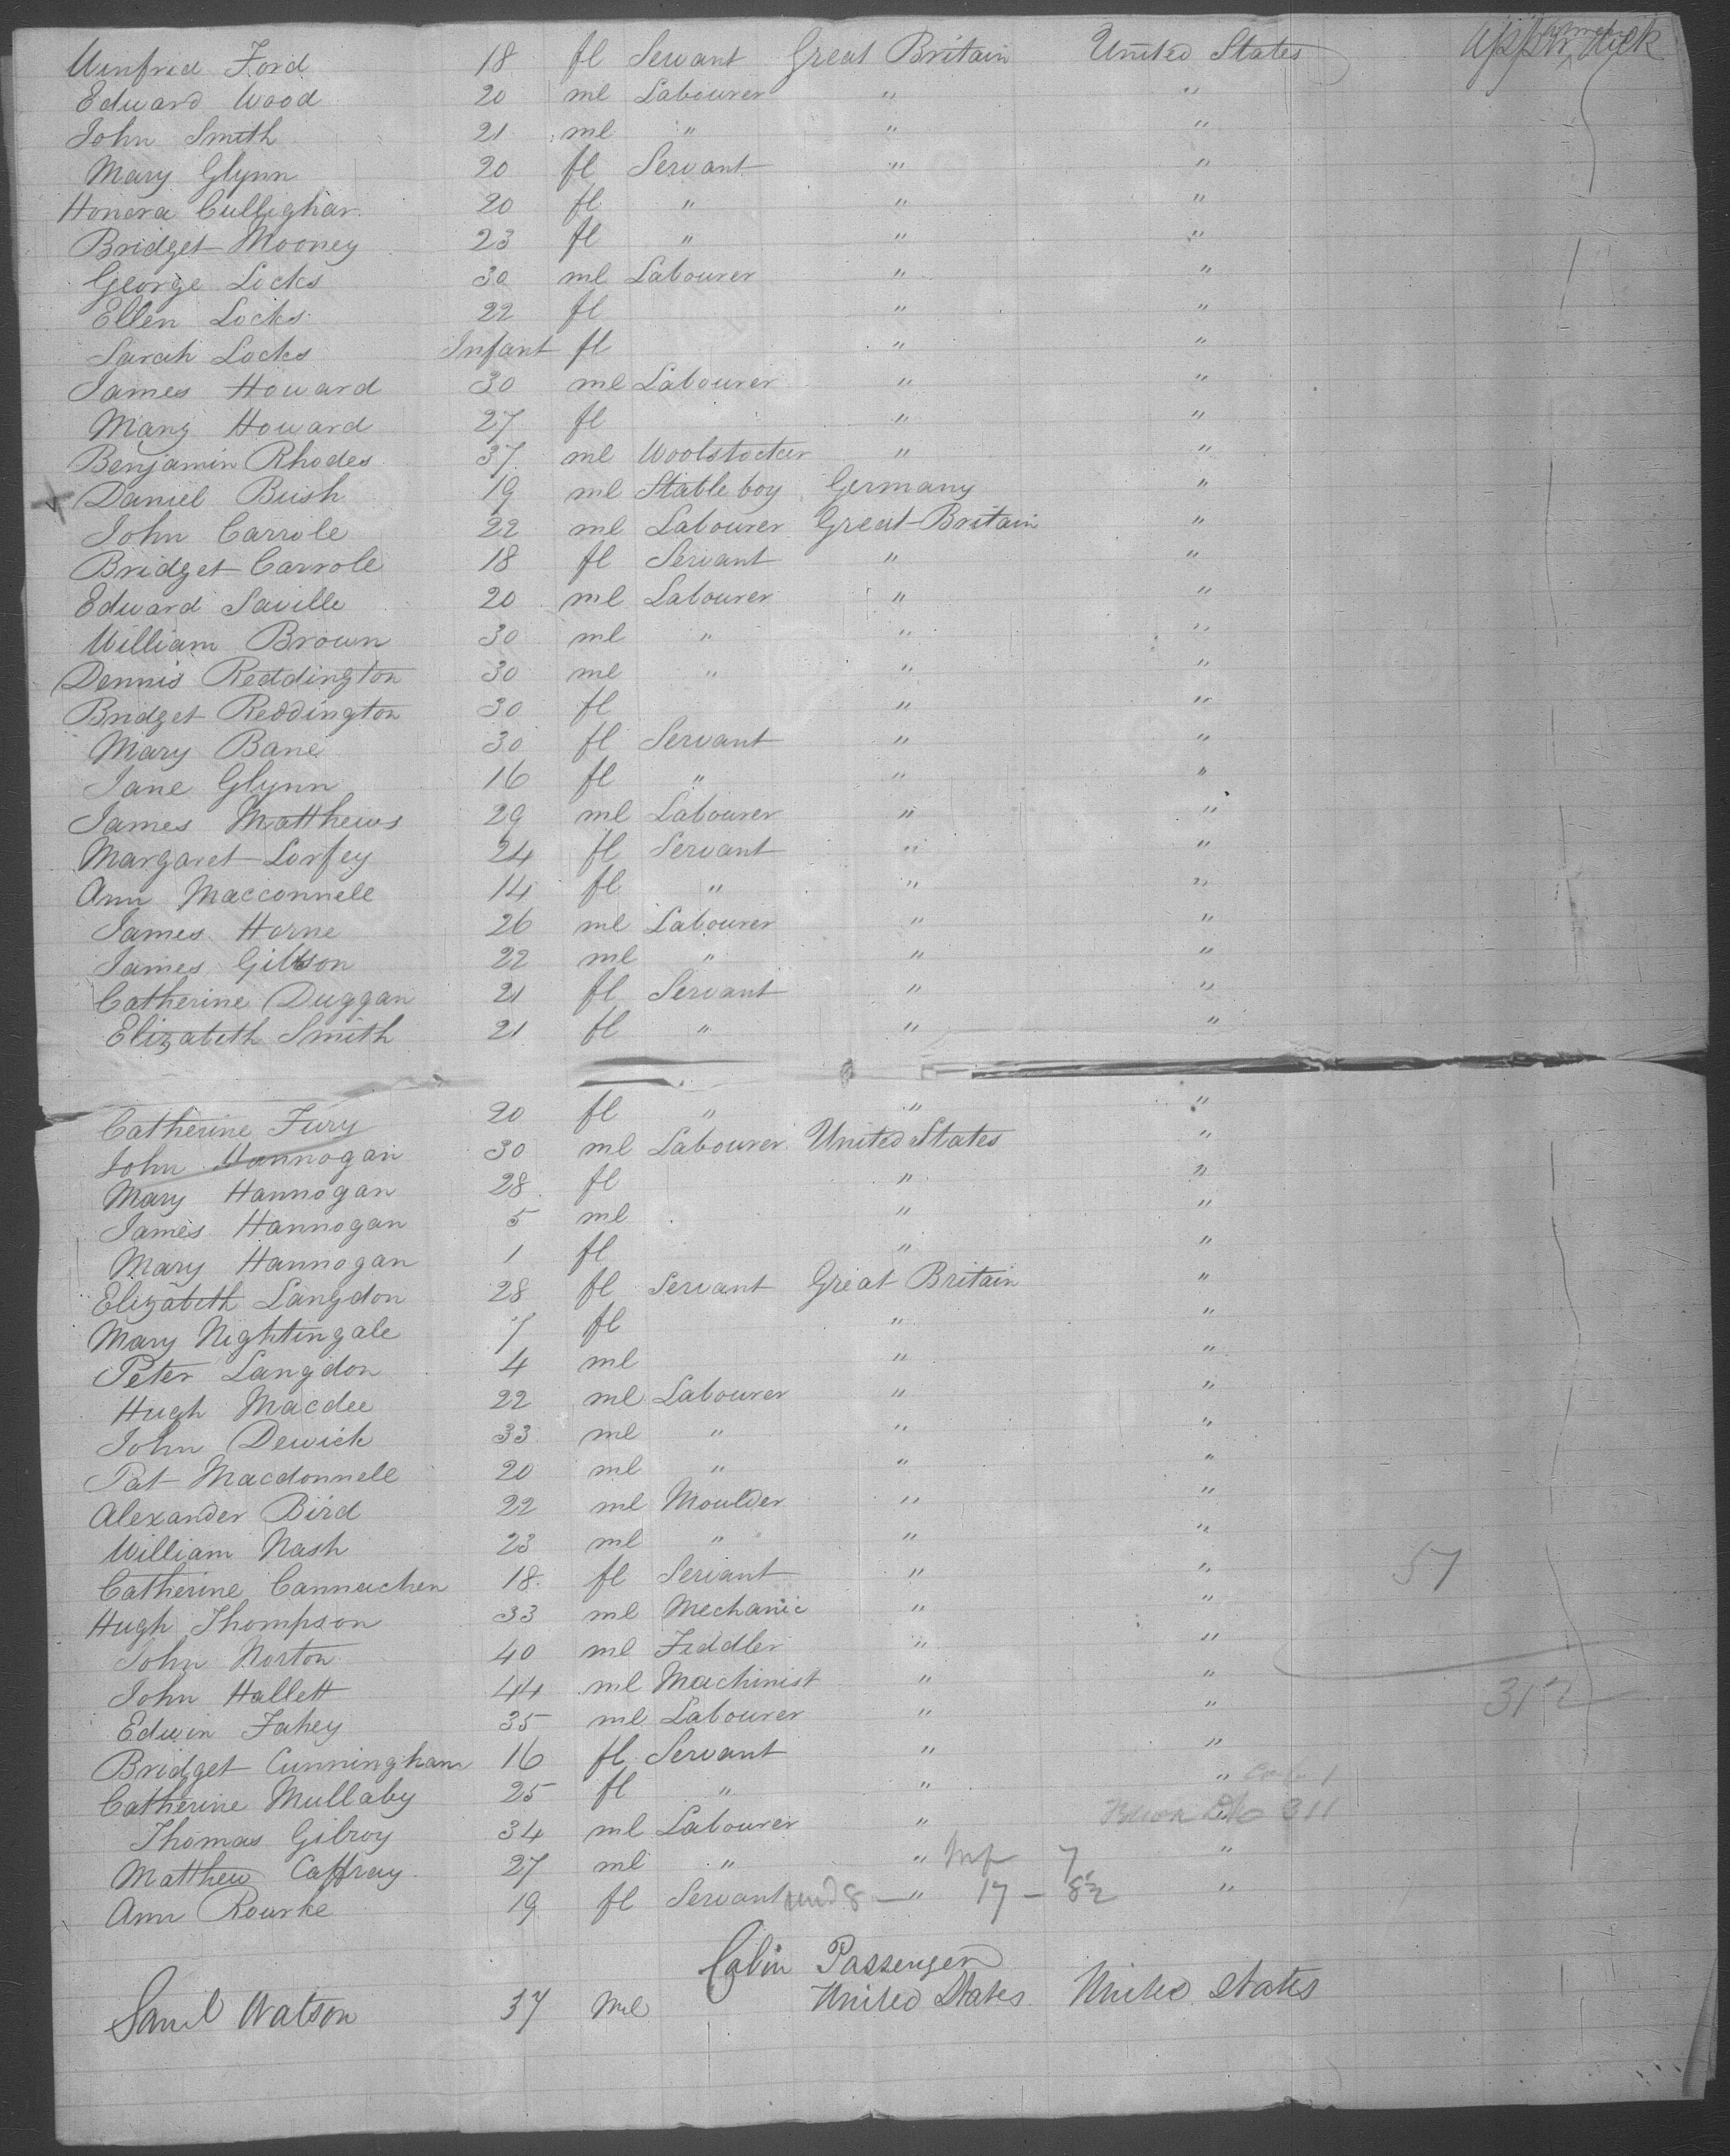 Winfred Ford 18 fl Servant Great Britain United States Upper deck
Edward Wood 20 ml Labourer " "
John Smith 21 ml " " "
Mary Glynn 20 fl Servant " "
Honora Cullighar 20 fl " " "
Bridget Mooney 23 fl " " "
George Locks 30 ml Labourer " "
Ellen Locks 22 fl " "
Sarah Locks Infant fl " "
James Howard 30 ml Labourer " "
Mary Howard 27 fl " "
Benjamin Rhodes 37 ml " "
Daniel Bush 19 ml Stable boy Germany "
John Carrole 22 ml Labourer Great Britain "
Bridget Carrole 18 fl Servant " "
Edward Saville 20 ml Labourer " "
William Brown 30 ml " " "
Dennis Reddington 30 ml " " "
Bridget Reddington 30 fl " "
Mary Bane 30 fl Servant " "
Jane Glynn 16 fl " " "
James Matthews 29 ml Labourer " "
Margaret Lorfey 24 fl Servant " "
Ann Macconnell 14 fl " " "
James Horne 26 ml Labourer " "
James Gibson 22 ml " " "
Catherine Duggan 21 fl Servant " "
Elizabeth Smith 21 fl " " "
Catherine Fury 20 fl " " "
John Hannogan 30 ml Labourer United States "
Mary Hannogan 28 fl " "
James Hannogan 5 ml " "
Mary Hannogan 1 fl " "
Elizabeth Langdon 28 fl Servant Great Britain "
Mary Nightingale 7 fl " "
Peter Langdon 4 ml " "
Hugh Macdee 22 ml Labourer " "
John Dewick 33 ml " " "
Pat Macdonnell 20 ml " " "
Alexander Bird 22 ml Moulder " "
William Nash 23 ml " " "
Catherine Cannachen 18 fl Servant " " 57
Hugh Thompson 33 ml Mechanic " "
John Norton 40 ml Fiddler " "
John Hallett 44 ml Machinist " "
Edwin Fahey 35 ml Labourer " " 312
Bridget Cunningham 16 fl Servant " "
Catherine Mullaby 25 fl " " " 1
Thomas Gilroy 34 ml Labourer " 311
Matthew Caffray 27 ml " " Inf 7 "
Ann Rourke 19 fl Servant und 8 — " 17 — 8½ "
Cabin Passenger
Saml Watson 37 ml United States United States